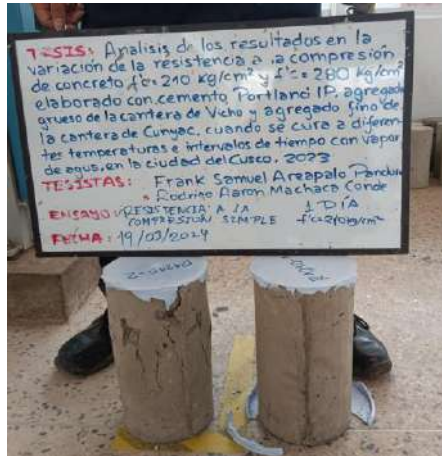 TESIS: Analisis de los resultados en la
variación de la resistencia a la compresión
de concreto f'c=210 kg/cm² y f'c=280 kg/cm²
elaborado con cemento Portland IP, agregado
grueso de la cantera de Vicho y agregado fino de
la cantera de Cunyac, cuando se cura a diferen-
tes temperaturas e intervalos de tiempo con vapor
de agua, en la ciudad del Cusco, 2023
TESISTAS: Frank Samuel Areapalo Panduro
Rodrigo Aaron Machaca Conde
ENSAYO: RESISTENCIA A LA 1 DÍA
COMPRESION SIMPLE f'c=210kg/cm²
FECHA: 19/03/2024